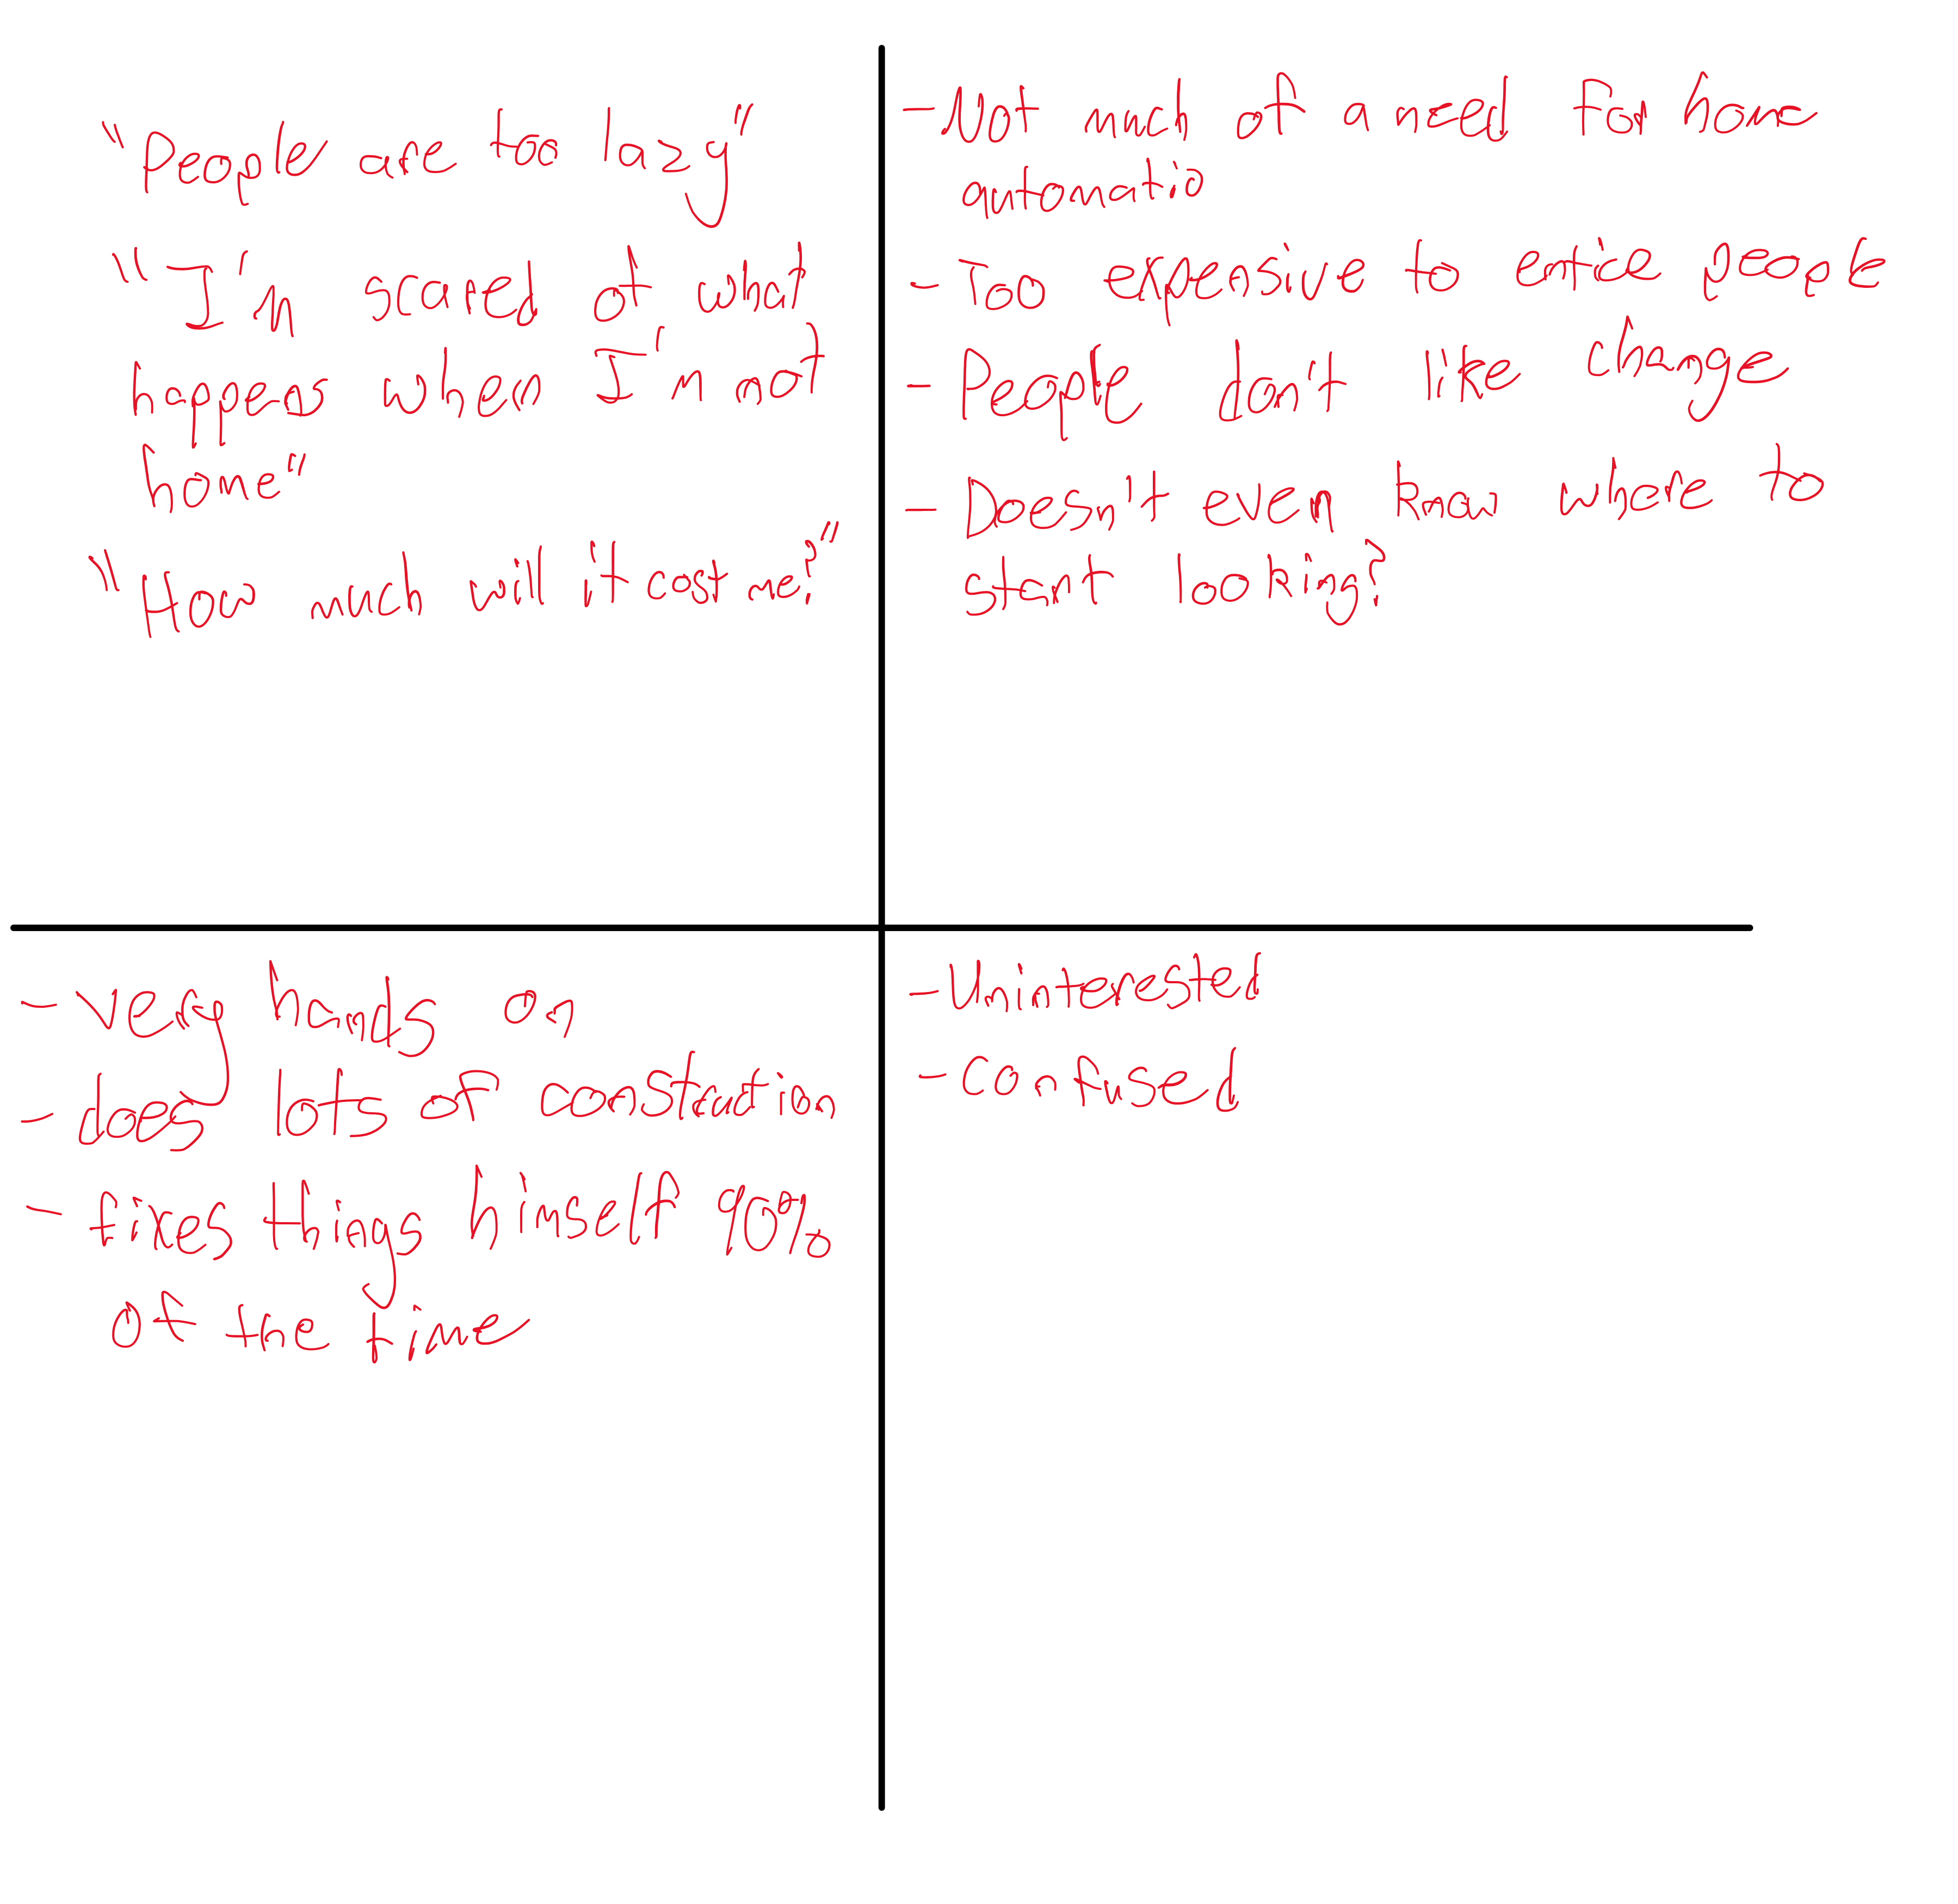 "People are too lazy"
"I'm scared of what
happens when I'm not
home"
"How much will it cost me?"
- Not much of a need for home
automatio
- Too expensive to entice people
- People don't like change
- Doesn't even know where to
start looking?
- very hands on
- does lots of construction
- fixes things himself 90%
of the time
- Uninterested
- Confused